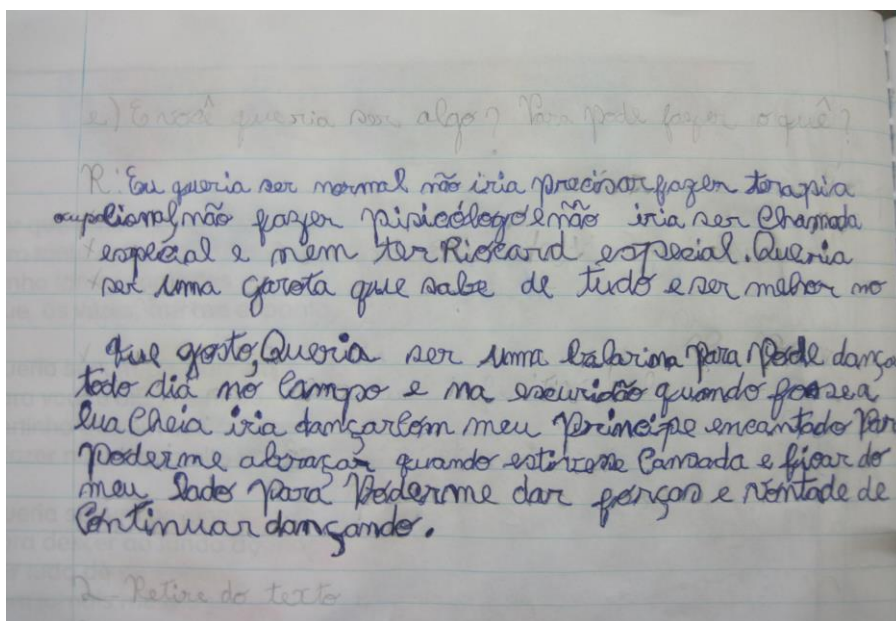 e) E você queria ser algo? Para pode fazer o quê?
R: Eu queria ser normal não iria precisar fazer terapia
ocupacional, não fazer pisicólogo e não iria ser chamada
especial e nem ter Riocard especial. Queria
ser uma garota que sabe de tudo e ser melhor no
que gosto, Queria ser uma bailarina para pode dança
todo dia no campo e na escuridão quando fosse a
lua cheia iria dançar com meu príncipe encantado Par
poder me abraçar quando estivesse cansada e ficar do
meu lado para poder me dar forças e vontade de
continuar dançando.
2- Retire do texto